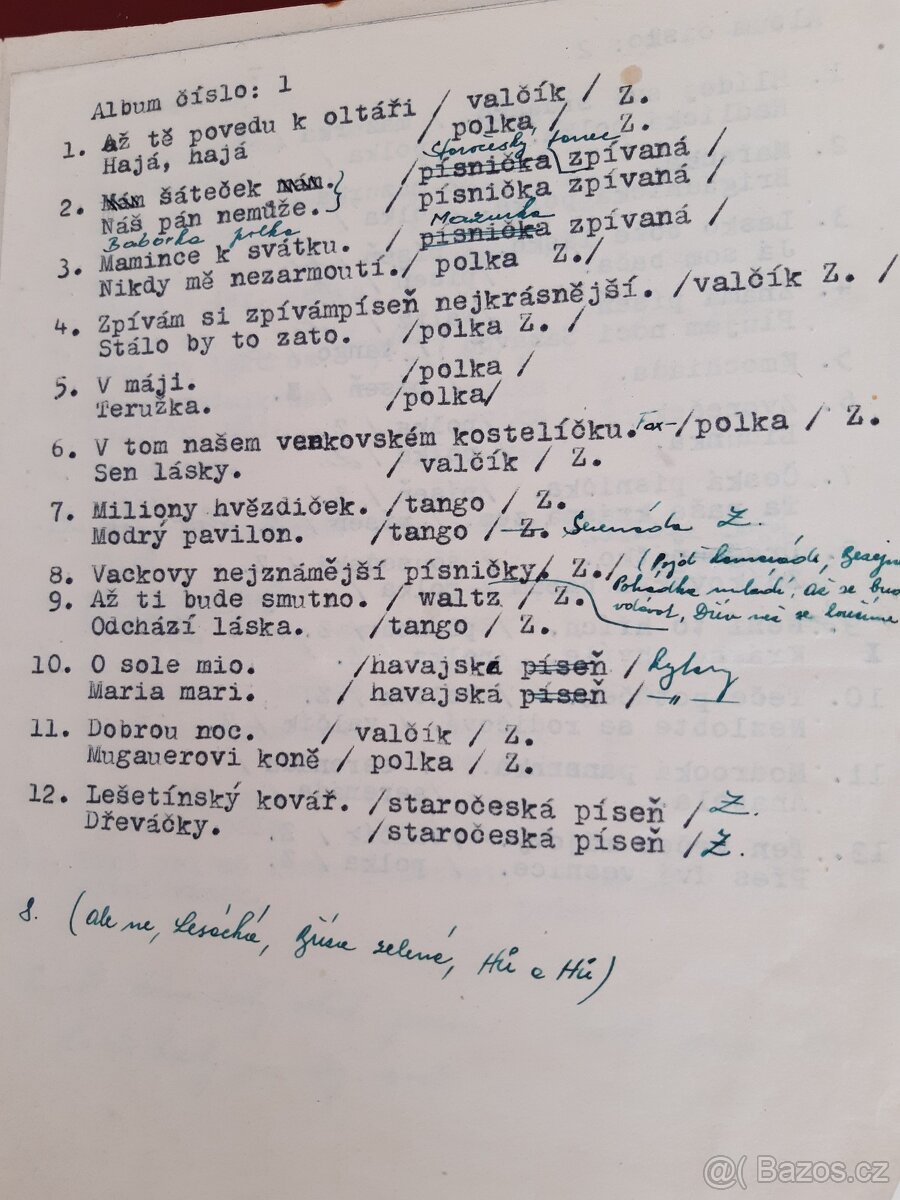 Album číslo: 1
1. Až tě povedu k oltáři / valčík / Z.
Hajá, hajá / polka / Z.
Staročeský tanec
2. Mám šáteček mám. / písnička zpívaná /
Náš pán nemůže. / písnička zpívaná /
Baborka polka Mazurka
3. Mamince k svátku. / písnička zpívaná /
Nikdy mě nezarmoutí. / polka Z. /
4. Zpívám si zpívámpíseň nejkrásnější. /valčík Z. /
Stálo by to zato. /polka Z. /
5. V máji. /polka /
Teružka. /polka/
6. V tom našem venkovském kostelíčku. Fox-/polka / Z.
Sen lásky. / valčík / Z.
7. Miliony hvězdiček. /tango / Z.
Modrý pavilon. /tango / Z. Serenáda Z.
8. Vackovy nejznámější písničky. Z./ (Pojď kamaráde,
Pohádka mládí, až se budo
9. Až ti bude smutno. / waltz / Z.
volávat, Dřív než se loučíme
Odchází láska. /tango / Z.
10. O sole mio. /havajská píseň / kytary
Maria mari. / havajská píseň / — " —
11. Dobrou noc. / valčík / Z.
Mugauerovi koně / polka / Z.
12. Lešetínský kovář. /staročeská píseň / Z
Dřeváčky. /staročeská píseň / Z.
8. (ale ne, zelená, Hů a Hů)
@( Bazos.cz